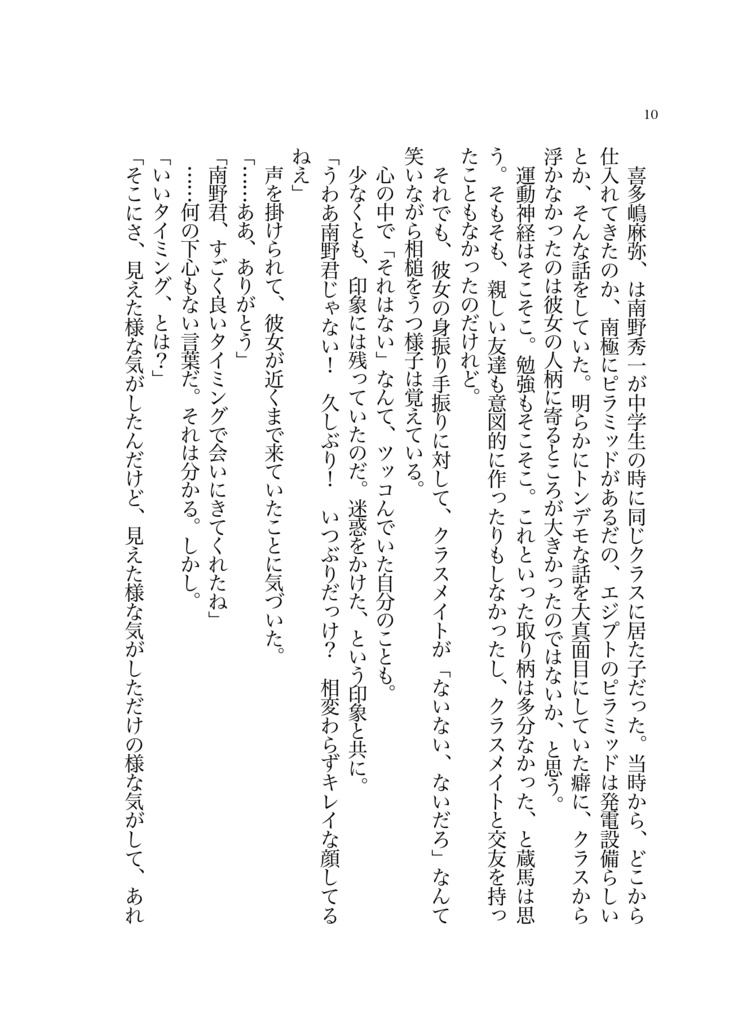 10
　喜多嶋麻弥、は南野秀一が中学生の時に同じクラスに居た子だった。当時から、どこから
仕入れてきたのか、南極にピラミッドがあるだの、エジプトのピラミッドは発電設備らしい
とか、そんな話をしていた。明らかにトンデモな話を大真面目にしていた癖に、クラスから
浮かなかったのは彼女の人柄に寄るところが大きかったのではないか、と思う。
　運動神経はそこそこ。勉強もそこそこ。これといった取り柄は多分なかった、と蔵馬は思
う。そもそも、親しい友達も意図的に作ったりもしなかったし、クラスメイトと交友を持っ
たこともなかったのだけれど。
　それでも、彼女の身振り手振りに対して、クラスメイトが「ないない、ないだろ」なんて
笑いながら相槌をうつ様子は覚えている。
　心の中で「それはない」なんて、ツッコんでいた自分のことも。
　少なくとも、印象には残っていたのだ。迷惑をかけた、という印象と共に。
「うわあ南野君じゃない！　久しぶり！　いつぶりだっけ？　相変わらずキレイな顔してる
ねえ」
　声を掛けられて、彼女が近くまで来ていたことに気づいた。
「……ああ、ありがとう」
「南野君、すごく良いタイミングで会いにきてくれたね」
　……何の下心もない言葉だ。それは分かる。しかし。
「いいタイミング、とは？」
「そこにさ、見えた様な気がしたんだけど、見えた様な気がしただけの様な気がして、あれ